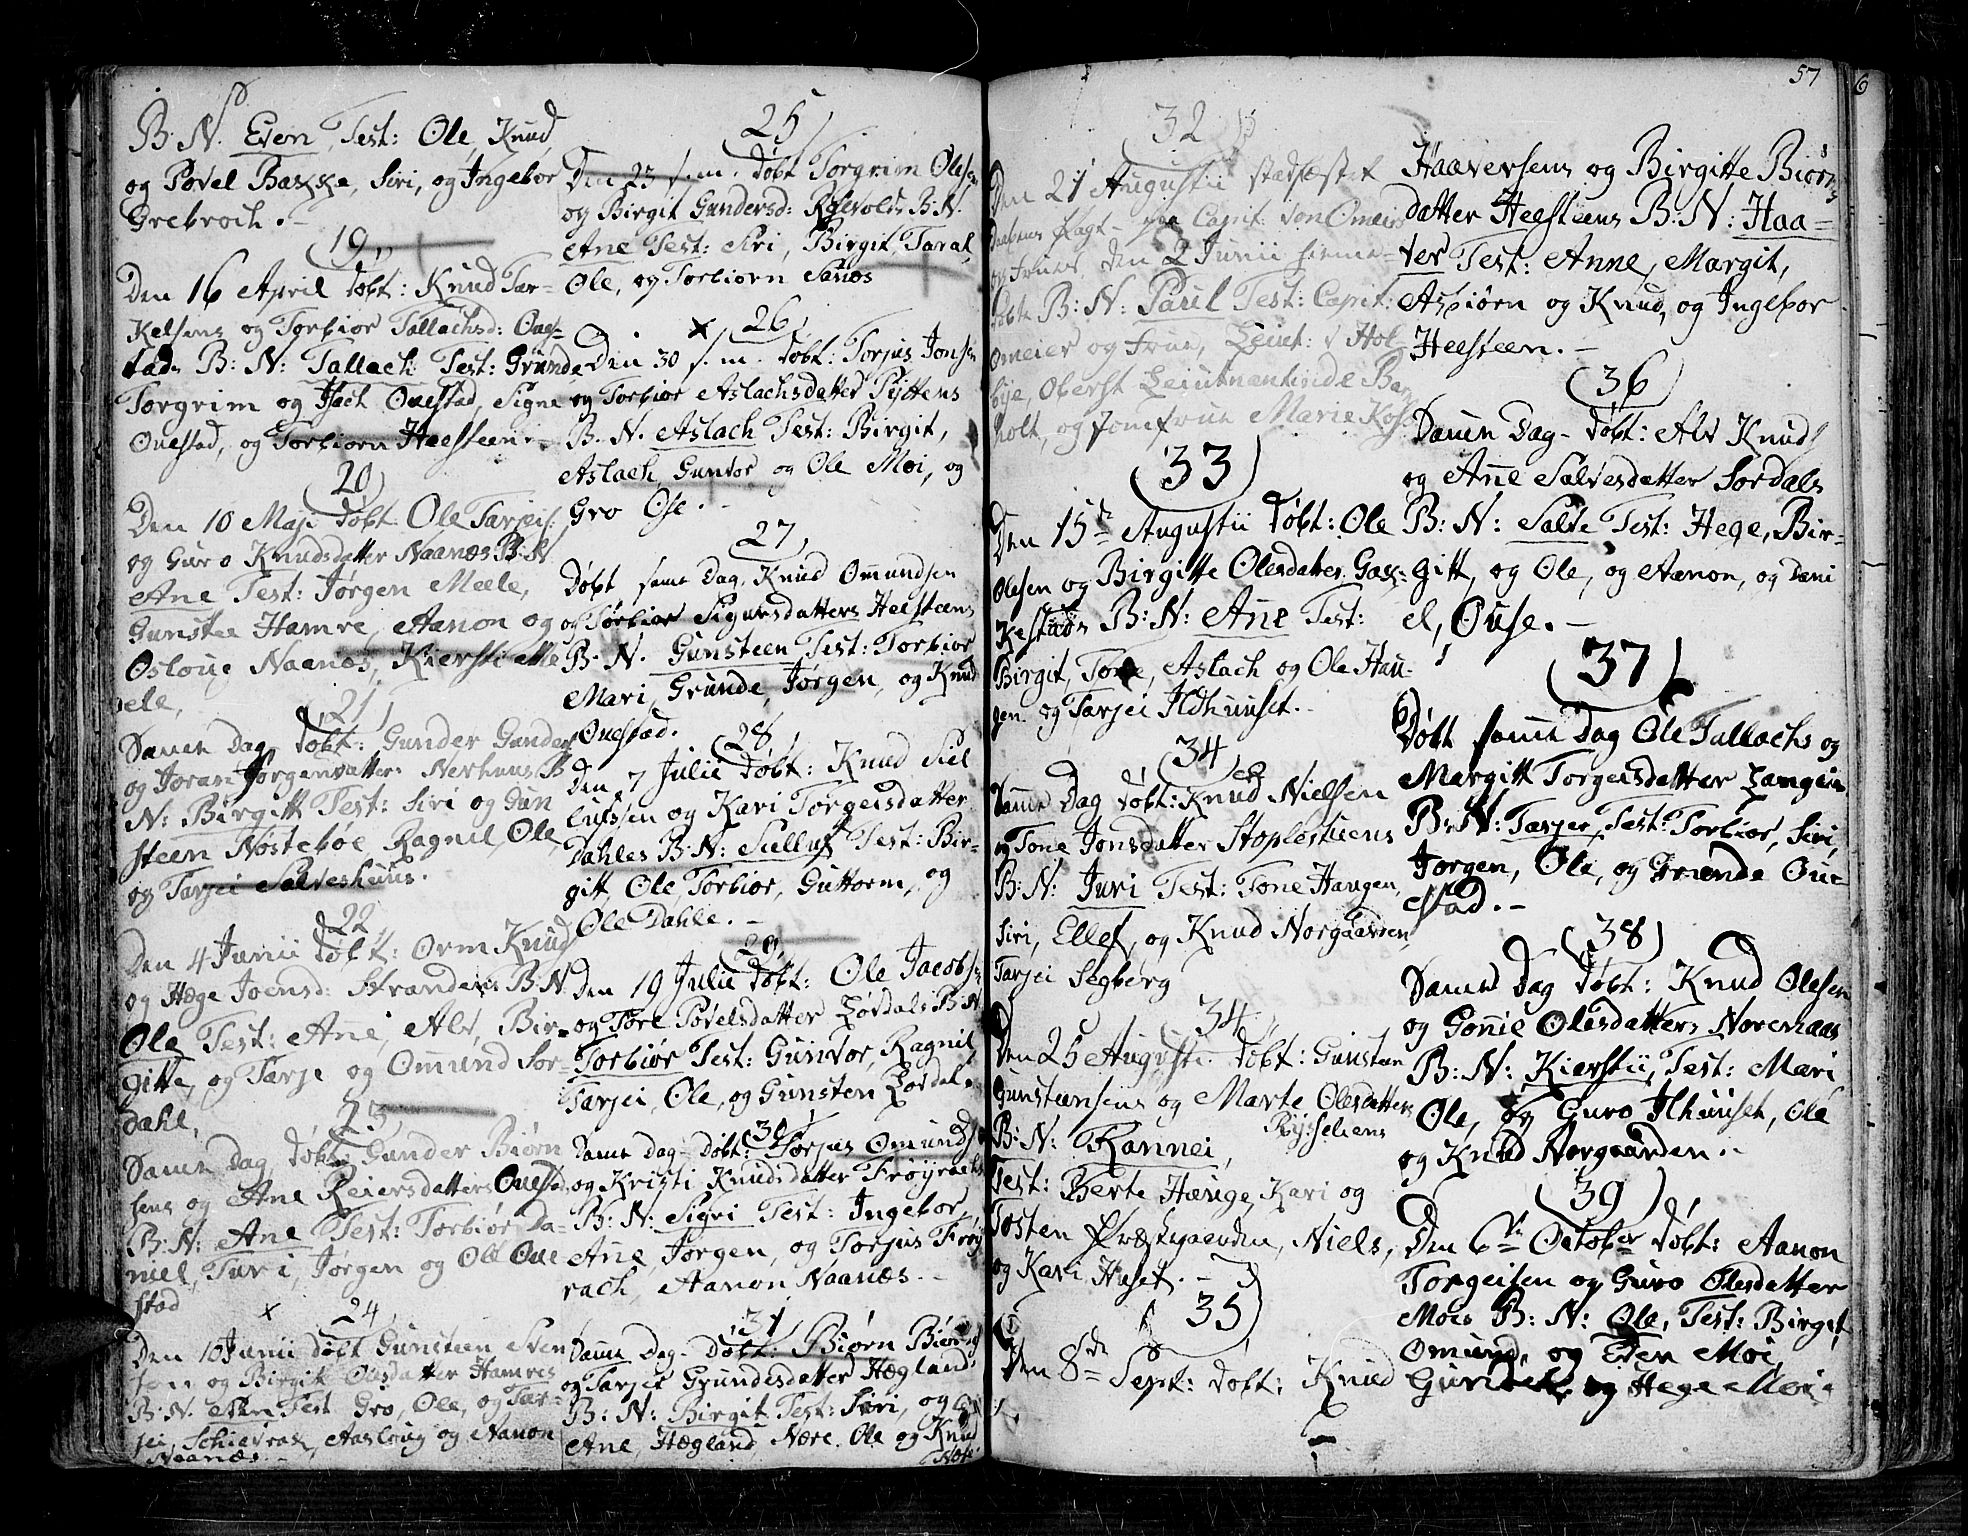 B: N. Even, Test: Ole, Knud,
og Povel Bakke, Siri, og Ingebor
Grebroch. -
19
Den 16 April døbt: Knud Tar-
Kelsens og Torbior Tallachsd: Oues-
tads B: N: Tallach Test: Grunde
Torgrim og Isach Ouestad, Signe
Ouestad, og Torbiorn Heesteen.
20
Den 10 Maji døbt Ole Tarjeis.
og Guro Knudsdatter Naanæs B. N
Ane Test: Jørgen Meele,
Gunstee Hamre, Aanon og
Osloug Naanæs, Kiersti Me
ele,
21
Samme Dag, døbt: Gunder Gunders
og Joran Jorgensdatters Nerhuus B
N: Birgitt Test: Siri og Gun
steen Nostebøe Ragnil, Ole,
og Tarjei Salveshuus.
22
Den 4 Junii døbt: Orm Knud
og Hæge Joensd: Strandens B: N.
Ole Test: Ane, Alv, Bir-
gitte, og Tarje og Omund Sor-
dahl,
23
Samme Dag, døbt: Gunder Biørn
sens og Ane Reiersdatters Ouestad
B: N: Ane Test: Torbiør, Da-
niel, Turi, Jørgen og Ole Oue
stad
24
Den 10 Junii døbt Gunsteen Even
sen og Birgit Olesdatter Hamres
B: N. Even Test Gro, Ole, og Tar-
jei, Aasloug og Aanon
Naanæs. -
25
Den 23 s. m. døbt Torgrim Olesen
og Birgit Gundersd: B: N.
Ane Test: Siri, Birgit, Taral,
Ole, og Torbiorn Sanos
26
Den 30 s. m. døbt: Torjus Jonsen
og Torbior Aslachsdatter Pyttens
B. N. Aslach Test: Birgit,
Aslach, Gunvor og Ole Moi, og
Gro Ose. -
27
Døbt samme Dag, Knud Omundsen
og Torbior Sigursdatters Heesteens
B. N. Gunsteen Test: Torbior
Mari, Grunde, Jørgen, og Knud
Ouestad.
28
Den 7 Julii døbt: Knud Siel
lufsen og Kari Torgeisdatter
Dahles B: N: Sielluf Test: Bir-
gitt, Ole, Torbior, Guttorm, og
Ole Dahle. -
29
Den 19 Julii døbt: Ole Jacobsen
og Tore Povelsdatter Lordals B: N
Torbiør Test: Gunvor, Ragnil,
Tarjei, Ole, og Gunsten Lordal.
30
Samme Dag døbt: Torjus Omunds
og Kristi Knudsdatter Frøyrachs
B: N: Sigri Test: Ingebor,
Ane, Jorgen, og Torjus Frøy
rach, Aanon Naanæs. -
31
Samme Dag døbt: Biørn Biørns
og Tarjer Grundesdatter Hægland.
B: N: Birgit Test: Siri, og
Ane, Hægland, Nære. Ole og Knud
57
6
32
Den 21 Augustii stadfæstet
Capit: von Omeiers
og Frues, den 2 Junii hiemme-
døbte B: N: Paul Test: Capit:
Omeier og Frue, Leiut: v Hol-
bye, Oberst Leiutnantinde Ber
holt, og Jomfrue Marie
33
Den 15de Augustii døbt: Ole
Olesen og Birgitte Olesdatter Gas-
Kestuds B: N: Ane Test:
Birgit, Tone, Aslach og Ole Hau-
gen og Tarjei Ildhuuset.
34
Samme Dag døbt: Knud Nielsen
og Tone Jonsdatter Stoplestueens
B: N: Juri Test: Tone Haugen,
Siri, Ellef, og Knud Norgaarden,
Tarjei Segberg
34
Den 25 Augusti døbt: Gunsten
Gunstensens og Marte Olesdatters
Rysseliens
B: N: Rannei,
Test: Berte Hæuge, Kari og
Tosten Præstegaarden, Niels,
og Kari Huset. -
35
Den 8de Sept: døbt: Knud
Haaversens og Birgitte Biorns
datter Heesteens B: N: Haa-
ver Test: Anne, Margit,
Asbiørn og Knud, og Ingebor
Heesteen. -
36
Samme Dag døbt: Alv Knuds
og Ane Salvesdatter Sordals
B: N: Salve Test: Hege, Bir-
gitt, og Ole, og Aanon, og Dani
el, Ouse. -
37
Døbt samme Dag Ole Tallachs og
Margitt Torgersdatter Langeim
B: N: Tarjer, Test: Torbior, Siri,
Jorgen, Ole, og Grunde Oue-
stad. -
38
Samme Dag døbt: Knud Olesen
og Gonie Olesdatters Noremaas
B: N: Kierstii, Test: Mari
Ole, og Guro Ilhuuset, Ole
og Knud Norgaarden. -
39
Den 6te October døbt: Aanon
Torgeisen og Guro Olesdatter
Moes B: N: Ole, Test: Birgit
Omund, og Even Moi,
og Hege Moi.